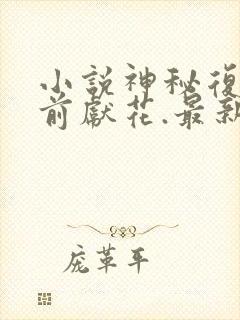 小説神秘復
前獻花.最新
庞革平